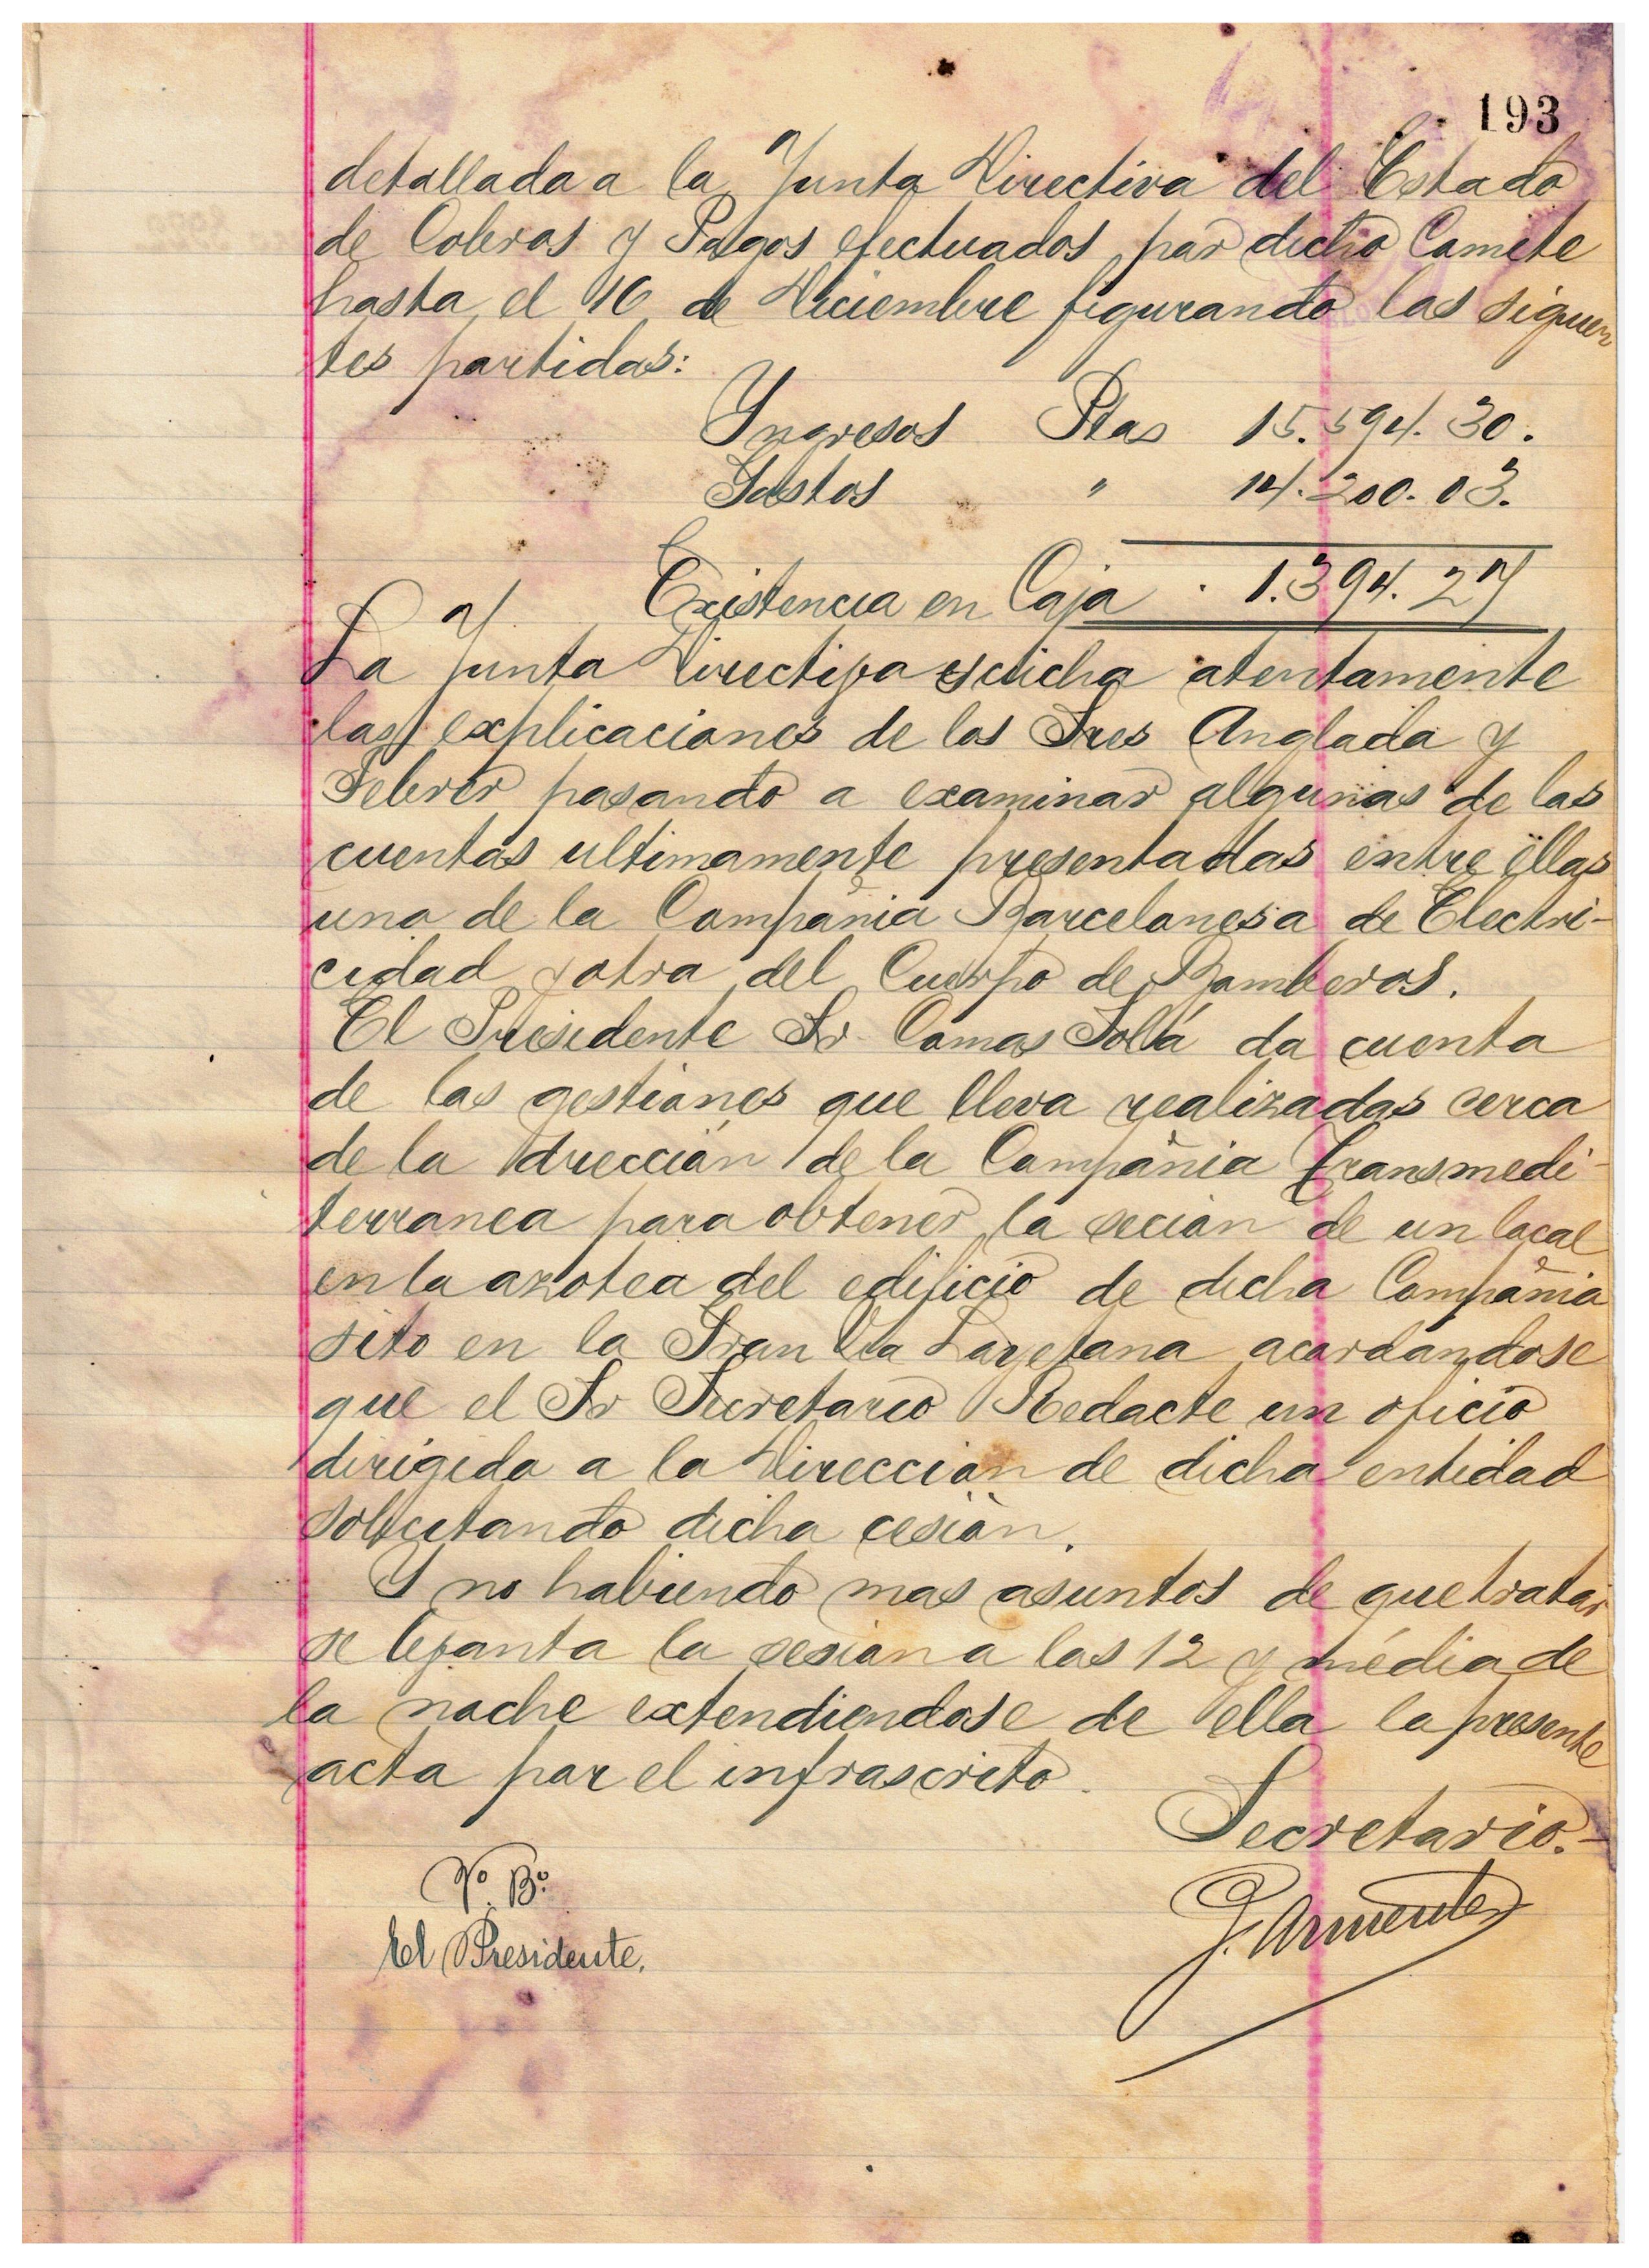 193
detallada a la Junta Directiva del Estado
de Cobros y Pagos efectuados por dicho Comite
hasta el 16 de Diciembre figurando las siguien
tes partidas:
Ingresos Ptas 15.594.30.
Gastos " 14.200.03.
Existencia en Caja . 1.394.27
La Junta Directiva escucha atentamente
las explicaciones de los Sres Anglada y
Febrer pasando a examinar algunas de las
cuentas ultimamente presentadas entre ellas
una de la Compañia Barcelonesa de Electri-
cidad y otra del Cuerpo de Bomberos.
El Presidente Sr. Comas Solá da cuenta
de las gestiones que lleva realizadas cerca
de la dirección de la Compañia Transmedi-
terranea para obtener la seción de un local
en la azotea del edificio de dicha Compañia
sito en la Gran Via Layetana acordándose
que el Sr Secretario Redacte un oficio
dirigido a la Dirección de dicha entidad
solicitando dicha cesión.
Y no habiendo mas asuntos de que tratar
se levanta la sesion a las 12 y média de
la noche extendiendose de ella la presente
acta por el infrascrito.
Secretario.-
Vº. Bº.
El Presidente.
J. Armenter